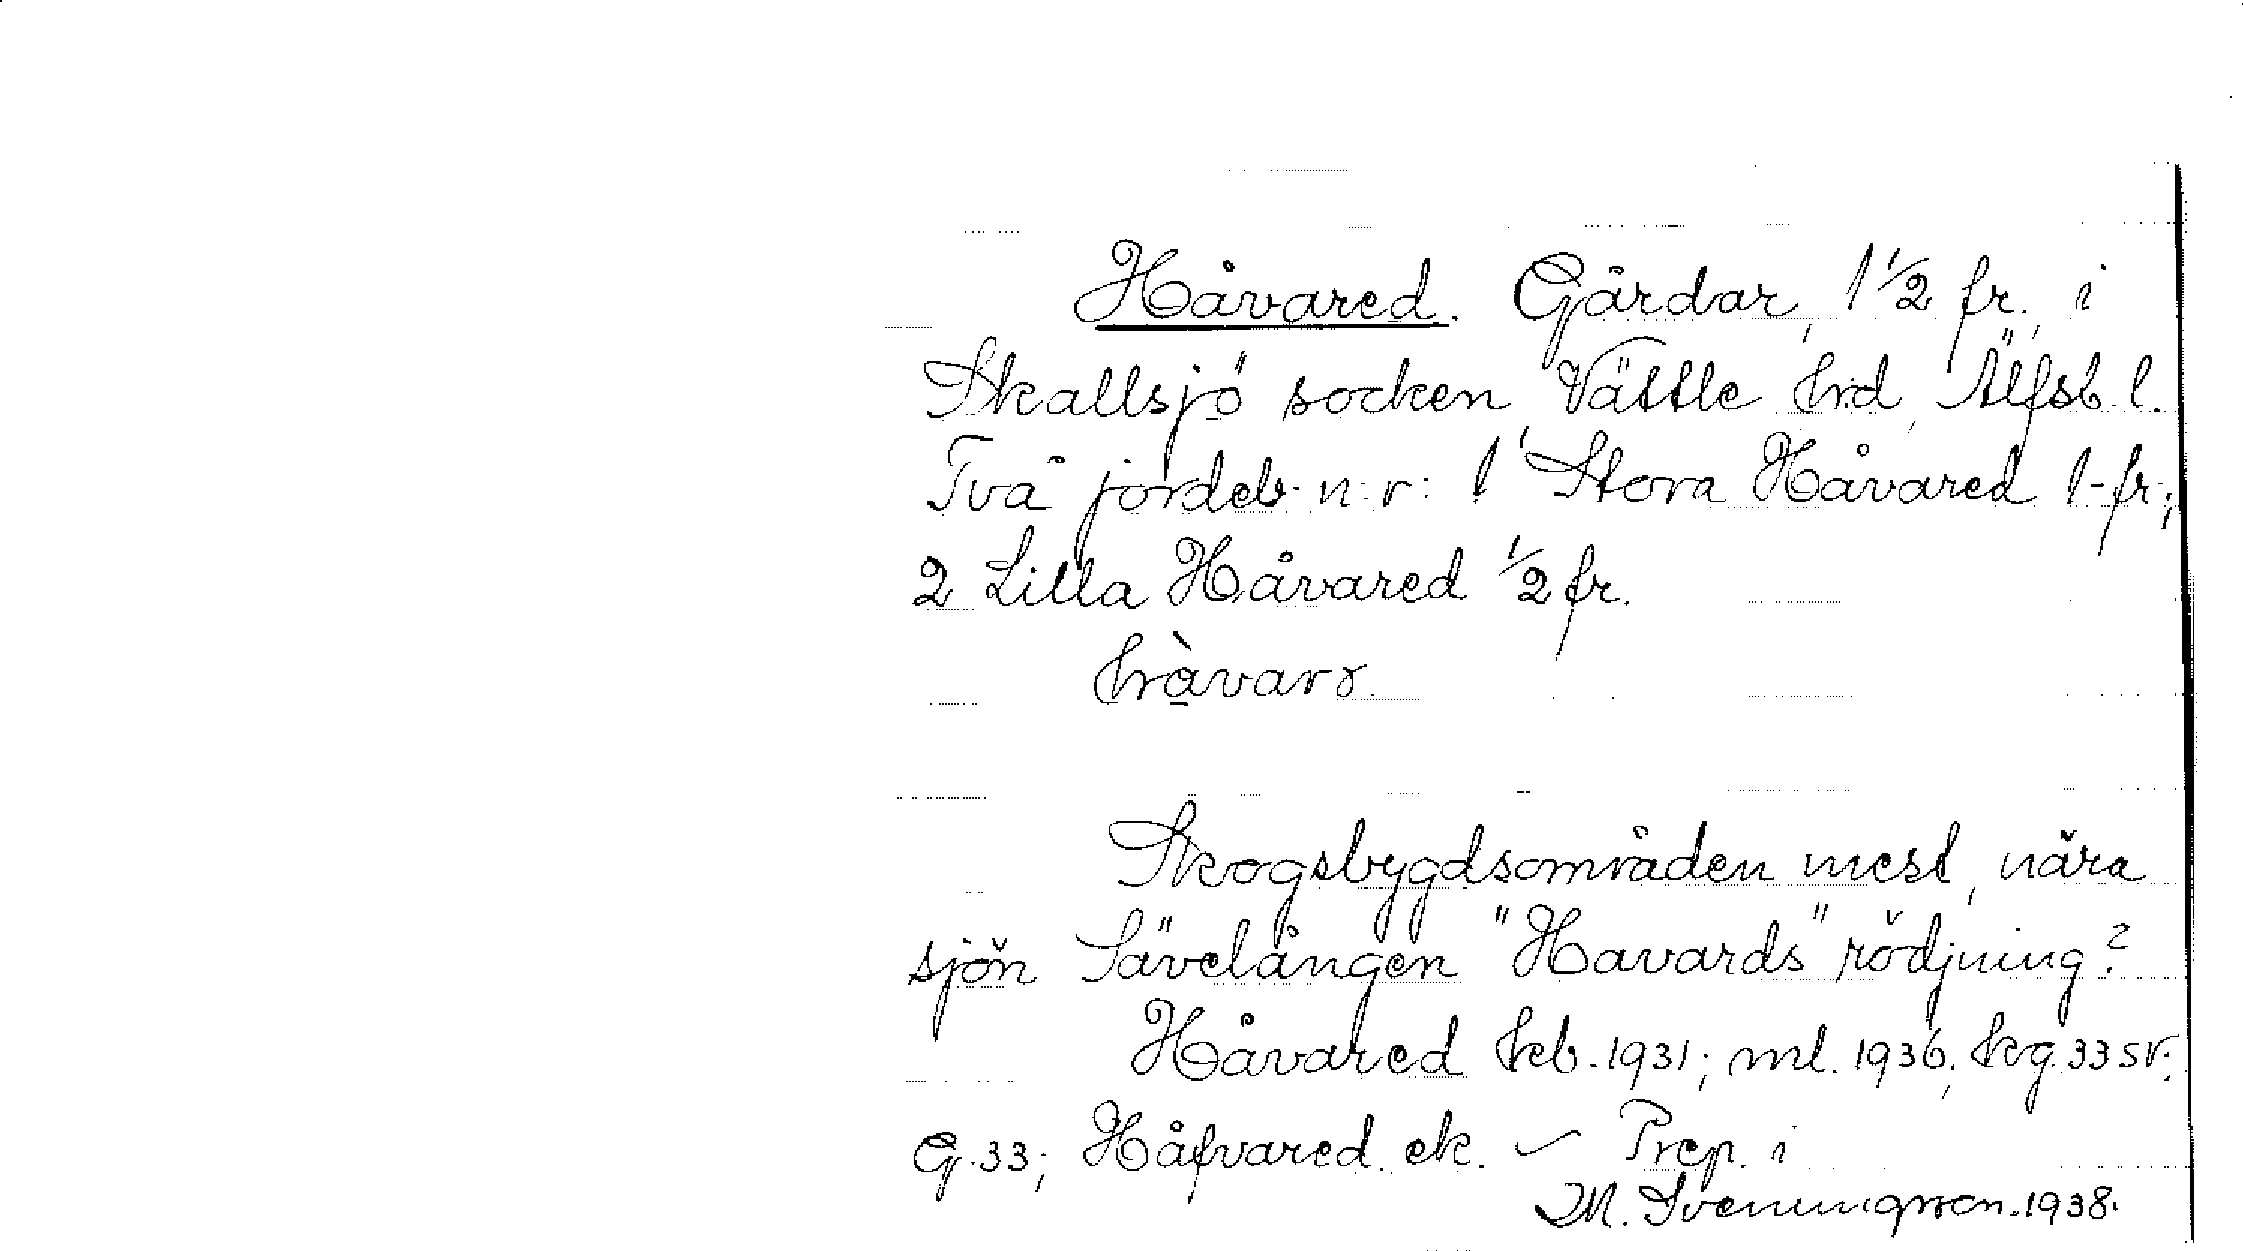 Håvared. Gårdar, 1 1/2 fr., i
Skallsjö socken, Vättle hrd, Älfsb. l.
Två jordeb. n:r: 1 Stora Håvared 1 fr.;
2 Lilla Håvared 1/2 fr.
hàvarə.
Skogsbygdsområden mest, nära
sjön Sävelången "Havards" rödjning?
Håvared kb. 1931; ml. 1936; kg. 33 SV.;
G. 33; Håfvared ek. – Prep. i
M. Sveningsson. 1938.